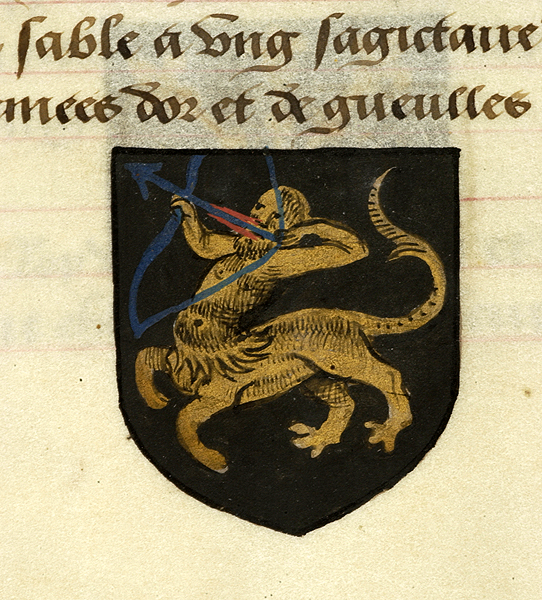 sable a vng sagictaire
mees dor et de gueulles